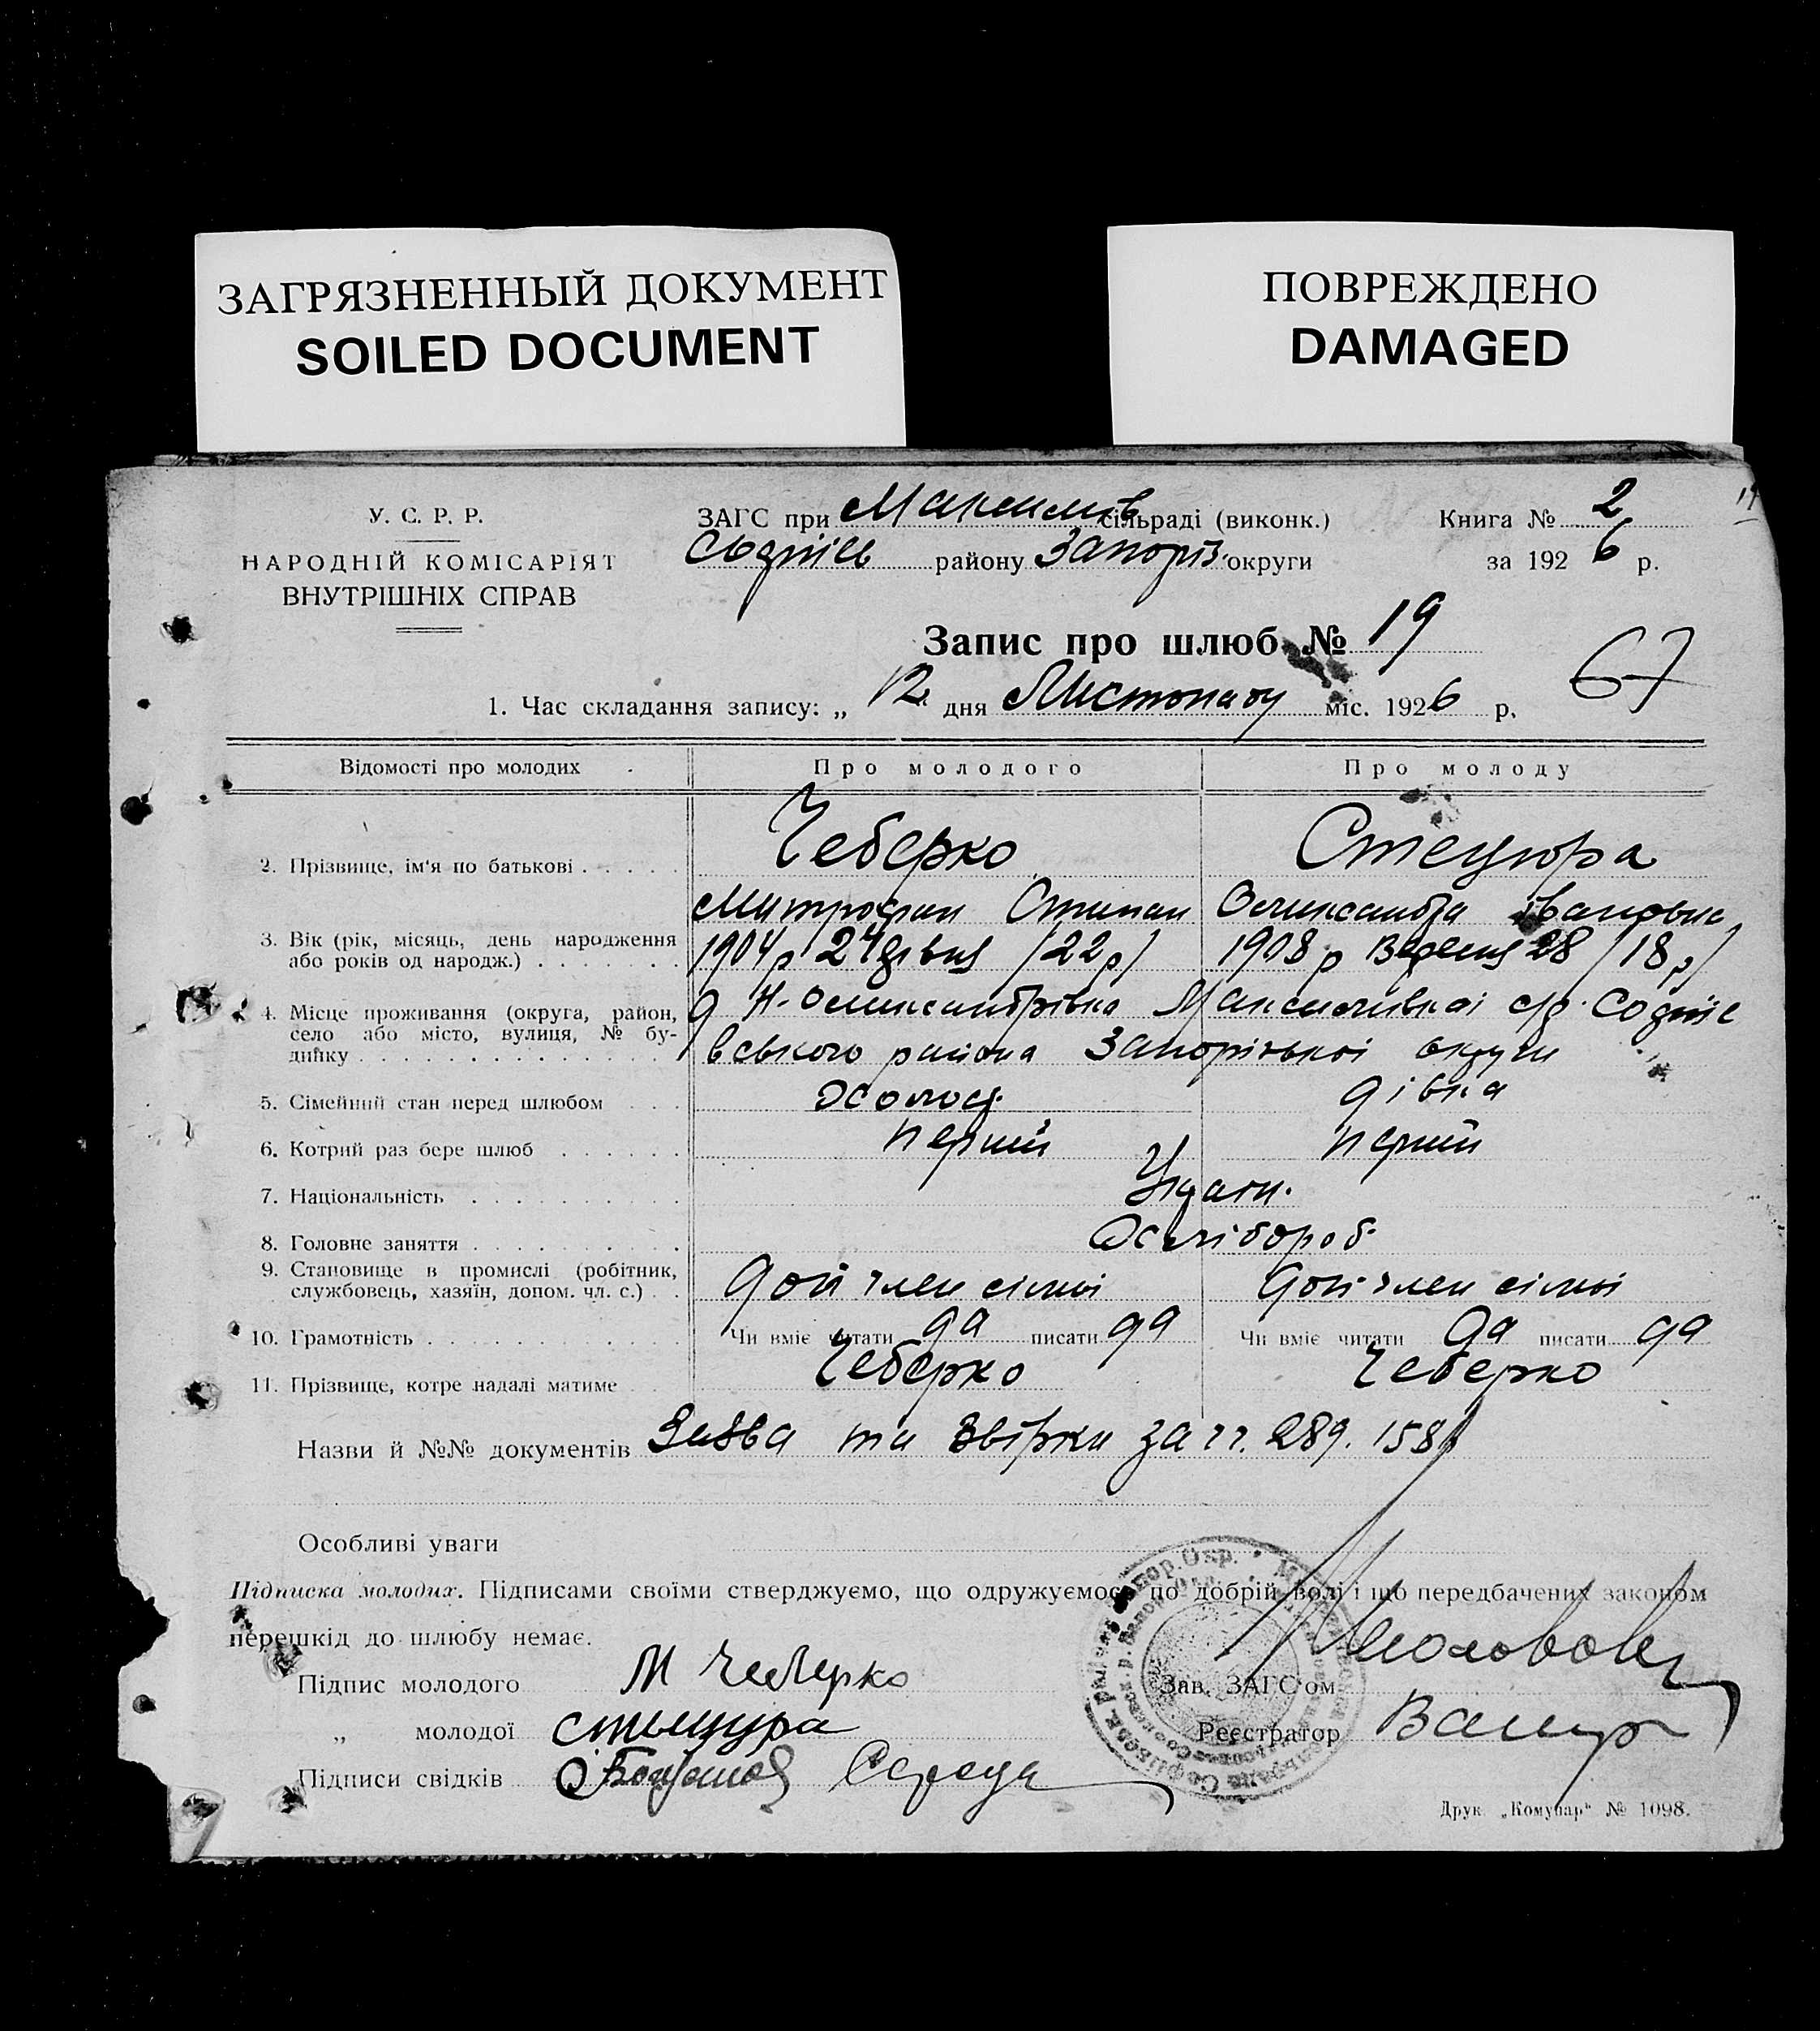 ЗАГРЯЗНЕННЫЙ ДОКУМЕНТ
SOILED DOCUMENT
ПОВРЕЖДЕНО
DAMAGED
У. С. Р. Р.
НАРОДНІЙ КОМІСАРІЯТ
ВНУТРІШНІХ СПРАВ
ЗАГС при Максимів сільраді (виконк.)
району Запоріз. округи
Книга № 2
за 1926 р.
Запис про шлюб № 19
67
1. Час складання запису: „ 12 дня Листопаду міс. 1926 р.
Відомості про молодих Про молодого Про молоду
2. Прізвище, ім'я по батькові Чеберко Стецюра
Митрофан Степан Олександра Івановна
3. Вік (рік, місяць, день народження або років од народж.) 1904 р 24 /22 р/ 1908 р Вересня 28 /18 р/
4. Місце проживання (округа, район, село або місто, вулиця, № будинку) д Н-Олександрівка с/р. Софїіє
вського района Запорізької округи
5. Сімейний стан перед шлюбом холост. дівка
6. Котрий раз бере шлюб перший перший
7. Національність Украін.
8. Головне заняття Хлібороб.
9. Становище в промислі (робітник, службовець, хазяїн, допом. чл. с.) доп член сімьі доп член сімьі
10. Грамотність Чи вміє читати да писати да Чи вміє читати да писати да
11. Прізвище, котре надалі матиме Чеберко Чеберко
Назви й №№ документів Заява та Звірка за чч. 289. 158
Особливі уваги
Підписка молодих. Підписами своїми стверджуємо, що одружуємось по добрій волі і що передбачених законом
перешкід до шлюбу немає.
Підпис молодого М Чеберко
„ молодої Стыцура
Підписи свідків Середа
Зав. ЗАГС'ом
Реєстратор
Друк. „Комунар" № 1098.